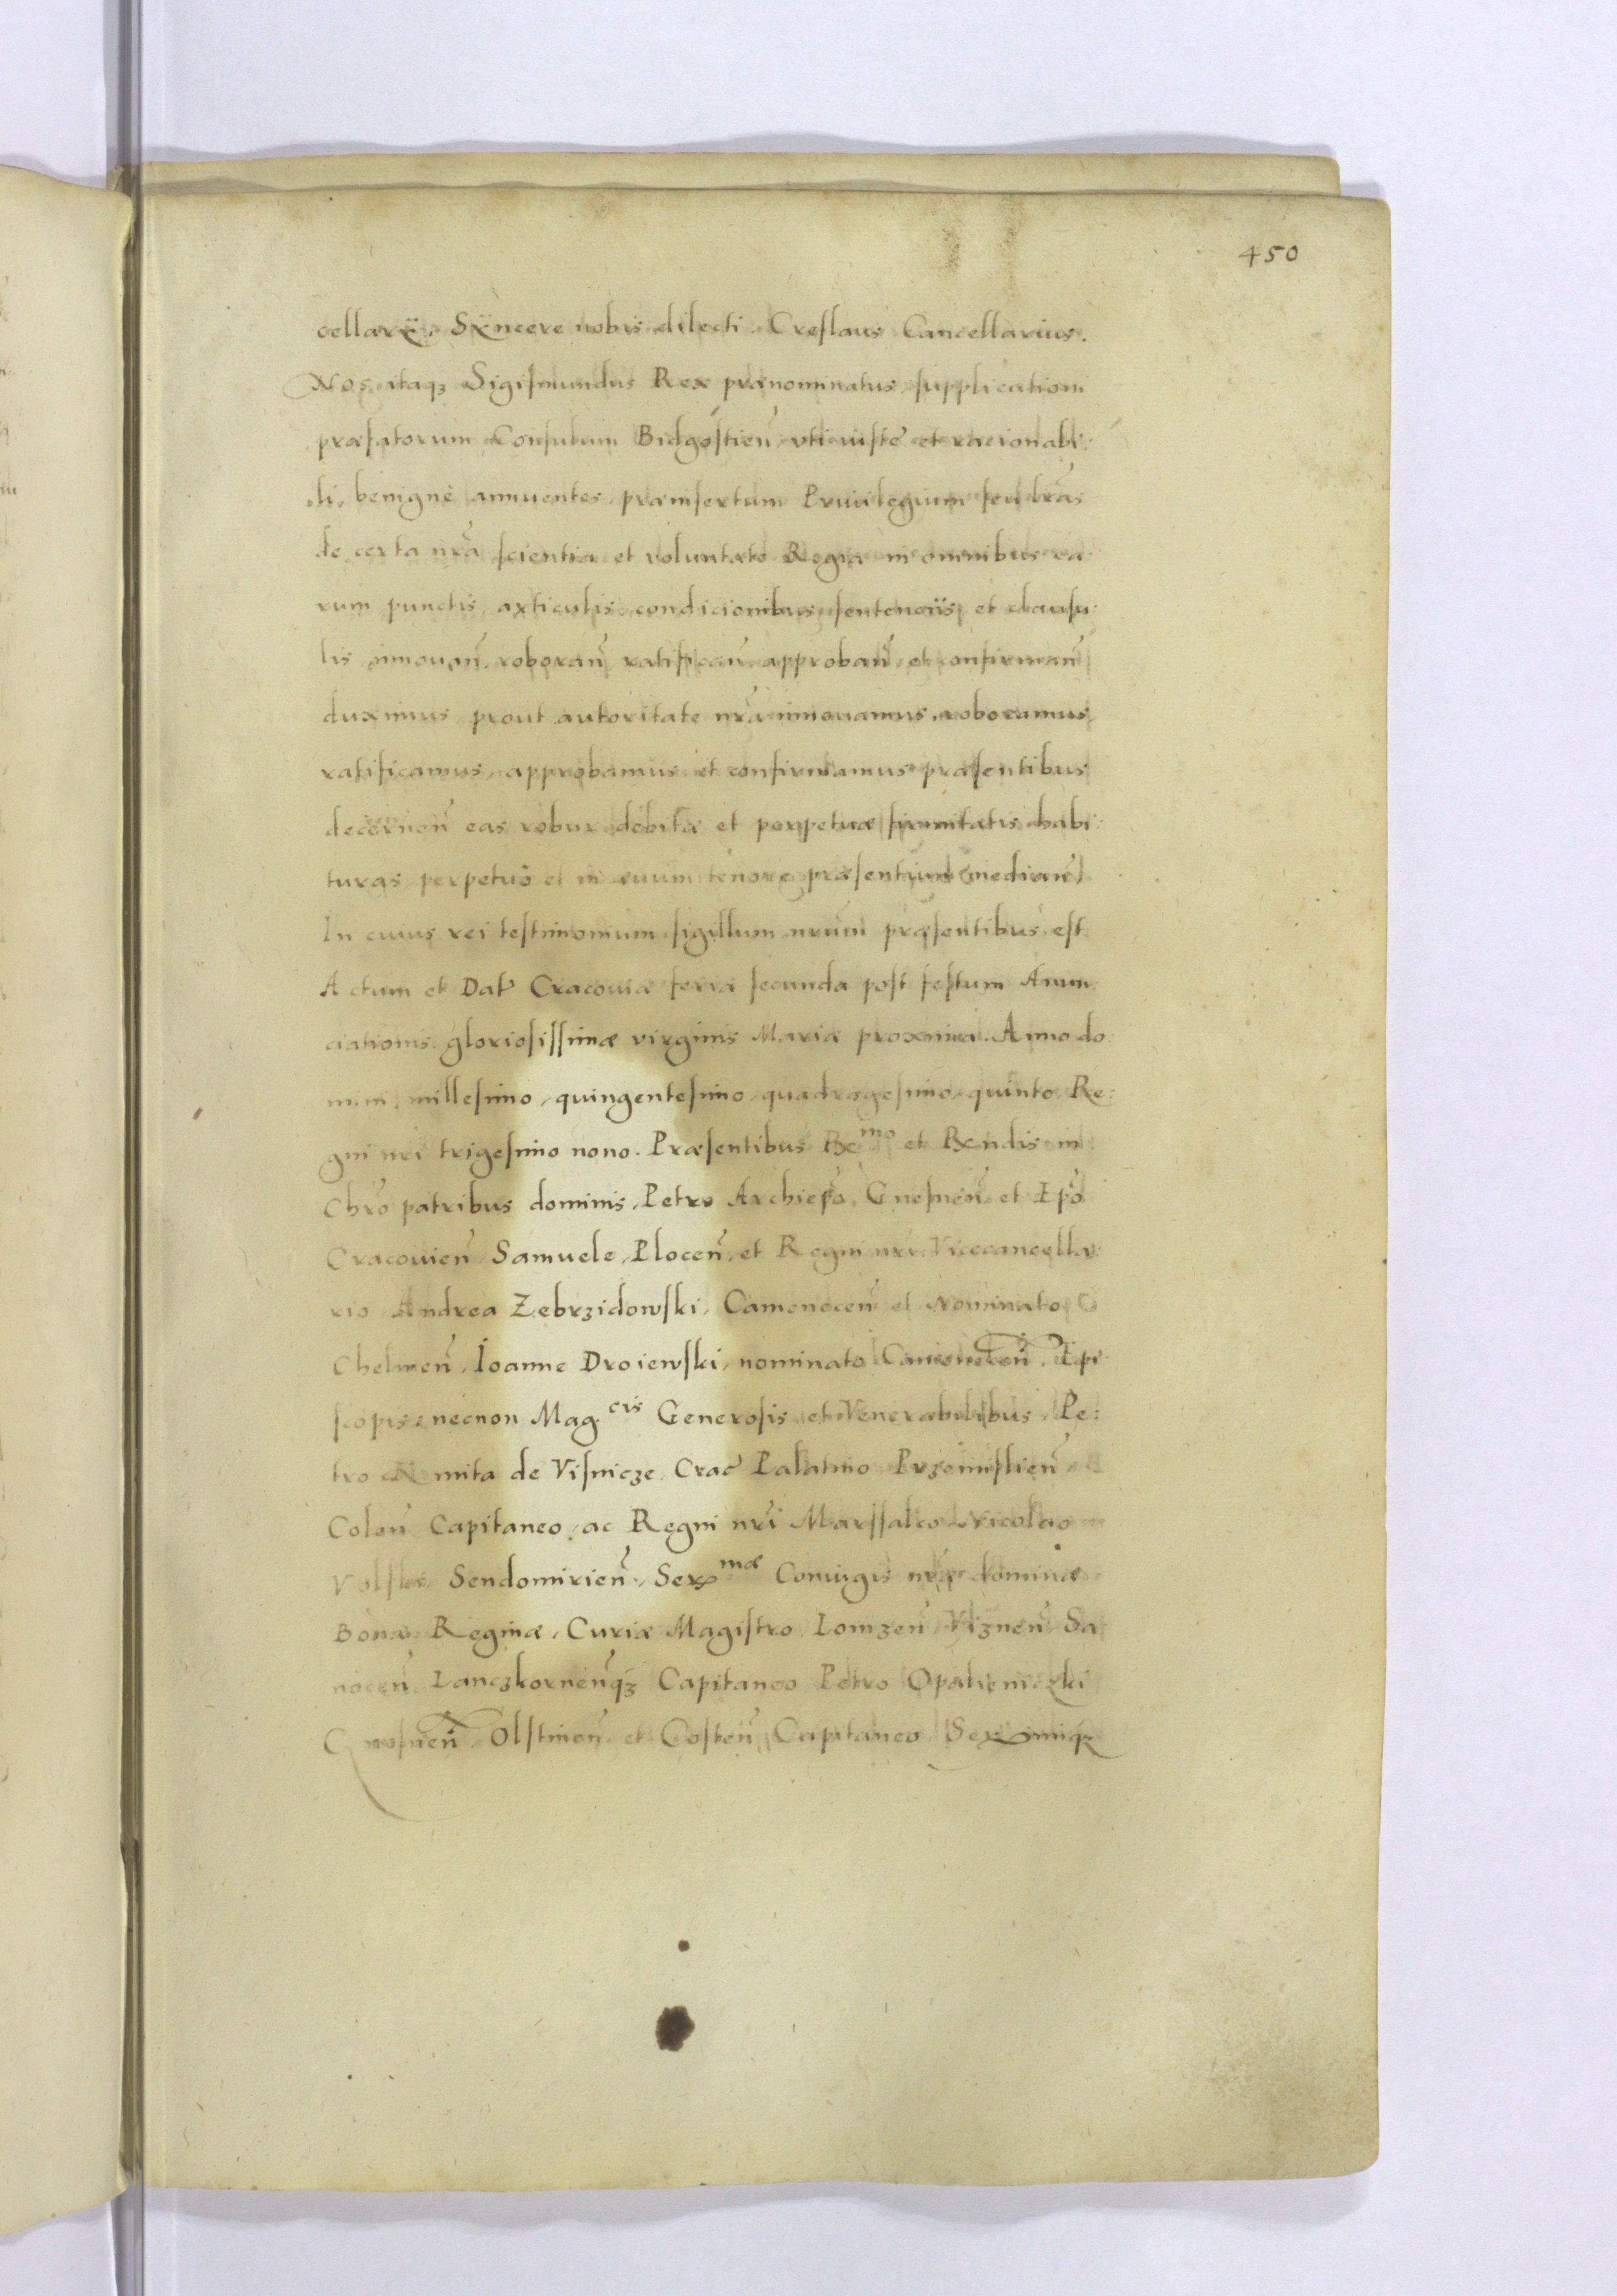 450
cellarÿ. Sÿncere nobis dilecti. Creslaus Cancellarius.
Nos itaqꝫ Sigismundus Rex prænominatus supplicationi
præfatorum Consulum Bidgostien̄ vti iuste et racionabi:
li, benignè annuentes, præinsertum Priuilegium seu lr̄as
de certa nr̄a scientia et voluntate Regia in omnibus ea
rum punctis, articulis, condicionibus, sentencÿs, et clausu:
lis innouan̄. roboran̄ ratifican̄ approban̄ et confirman̄
duximus prout autoritate nr̄a innouamus. roboramus,
ratificamus, approbamus et confirmamus præsentibus
decernen̄ eas robur debitæ et perpetuæ firmitatis habi:
turas perpetuò et in æuum tenore præsentium median̄)
In cuius rei testimonium sigillum nr̄um præsentibus est
Actum et Dat̄ Cracouiæ feria secunda post festum Anun
ciationis gloriosissimæ virginis Mariæ proxima. Anno do:
mini millesimo, quingentesimo, quadragesimo, quinto, Re:
gni nr̄i trigesimo nono. Præsentibus Re^mo et Rendis in
Chr̄o patribus dominis, Petro Archiep̄o, Gnesnen̄ et Ep̄o
Cracouien̄ Samuele, Plocen̄, et Regni nr̄i Vicecancella:
rio Andrea Zebrzidowski, Camenecen̄ et Nominato
Chelmen̄, Ioanne Droiewski, nominato Camenecen̄. Epi
scopis, necnon Mag.^cis Generosis et Venerabilibus, Pe:
tro Kmita de Visnicze, Crac̄ Palatino Przemislien̄
Colen̄ Capitaneo, ac Regni nr̄i Marssalco Nicolao
Volski Sendomirien̄, Ser^mæ Coniugis nr̄æ dominæ
Bonæ Reginæ, Curiæ Magistro, Lomzen̄ Viznen̄ Sa
nocen̄ Lanczkornen̄qꝫ Capitaneo Petro Opalieniczki
Gnesnen̄, Olstinen̄ et Costen̄ Capitaneo